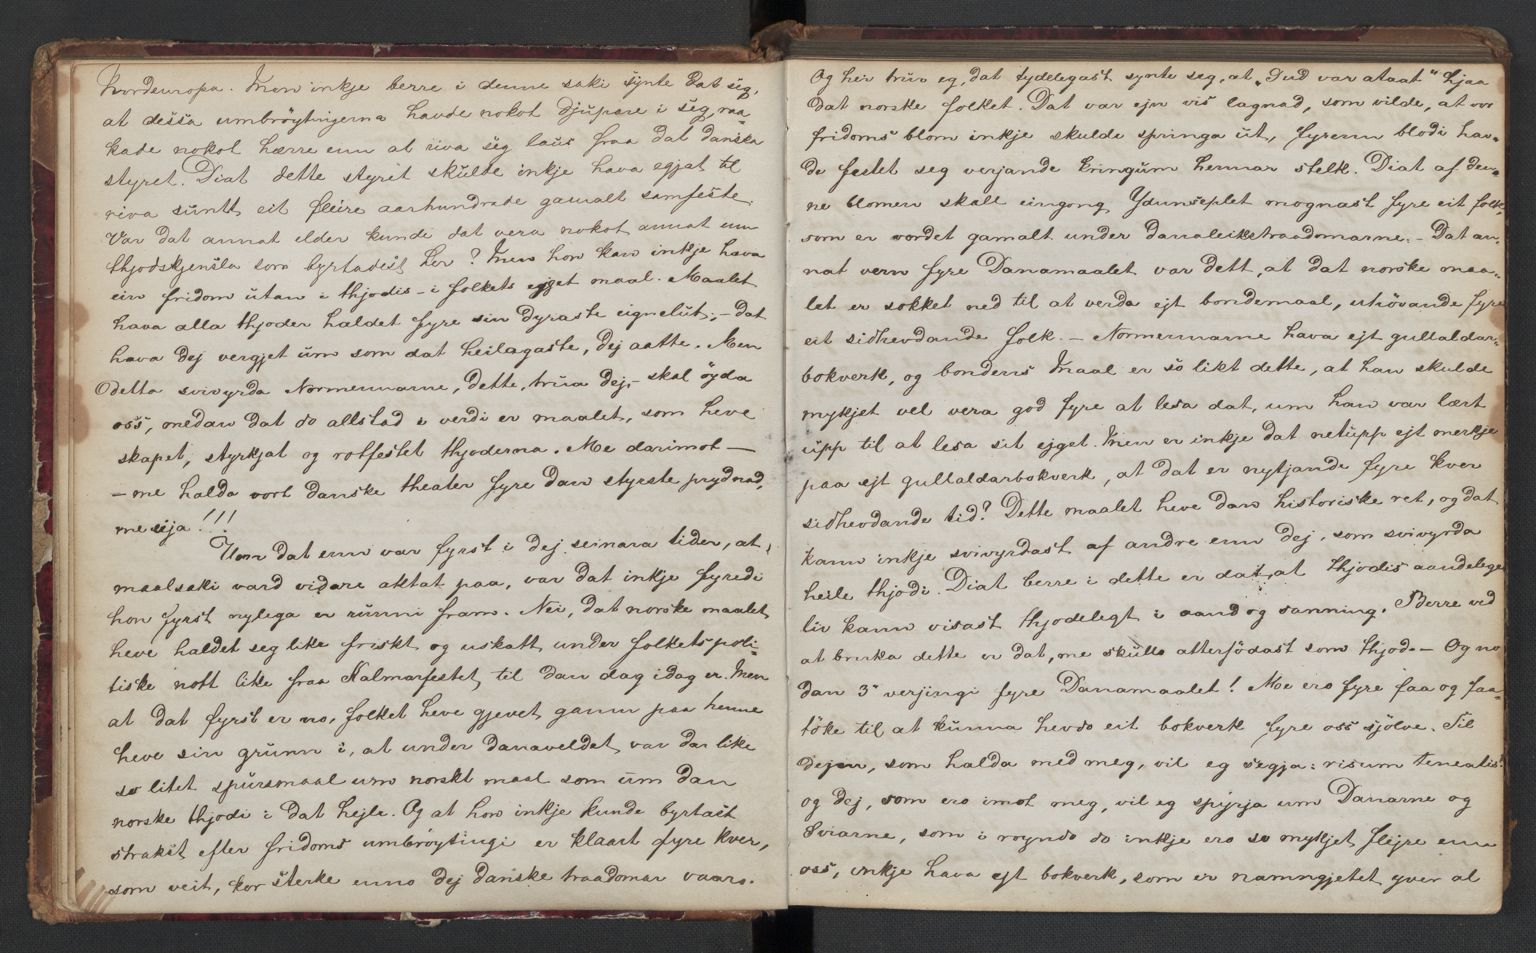 Nordeuropa. Men inkje berre i denne saki synte dat seg,
at dessa umbröytingerna havde nokot djupare i seg, raa-
kade nokot hærre enn at riva seg laus fraa dat danska
styret. Diat dette styrit skulde inkje hava egjat til
riva sunt eit fleire aarhundrade gamalt samfeste.
Var dat annat elder kunde dat vera nokot annat enn
thjodskjensla som byrtadest her? Men hon kan inkje hava
ein fridom utan i thjodis – i folkets egjet maal. Maalet
hava alla thjoder haldet fyre sin dyraste eignelut; – dat
hava dej vergjet um som dat heilagaste, dej aatte. Men
detta svivyrda Normennarne, dette, trua dej, – skal öyda
oss, medan dat so allstad i verdi er maalet, som heve
skapet, styrkjat og rotfestet thjoderna. Me darimot –
– me halda vort danske theater fyre dan styrste prydnad,
me eija!!!
Um dat enn var fyrst i dej seinara tider, at
maalsaki vard vidare aktat paa, var dat inkje fyredi
hon fyrst nylega er runni fram. Nei, dat norske maalet
heve haldet seg like friskt og uskatt under folkets poli-
tiske nott like fraa Kalmarfestet til dan dag idag er. Men
at dat fyrst er no, folket heve gjevet gaum paa henne
heve sin grunn i, at under danaveldet var dar like
so litet spursmaal um norskt maal som um dan
norske thjodi i dat hejle. Og at hon inkje kunde byrtast
strakst efter fridoms umbröytingi er klaart fyre kver,
som veit, kor sterke enno dej danske traadomar vaaro.
Og heir truo eg, dat tydelegast synte seg, at "Gud var ataat" hjaa
dat norske folket. Dat var ejn vis lagnad, som vilde, at vor
fridoms blom inkje skulde springa ut, fyrenn blodi hav-
de festet seg verjande kringum hennar stelk. Diat af den-
ne blomen skall eingong Ydunseplet mognast fyre eit folk,
som er vordet gamalt under danaleikstraadomarne. – Dat an-
nat vern fyre Danamaalet var dett, at dat norske maa-
let er sokket ned til at verda ejt bondemaal, uhövande fyre
eit sidhevdande folk. – Normennarne hava ejt gullaldar-
bokverk, og bondens maal er so likt dette, at han skulde
mykjet vel vera god fyre at lesa dat, um han var lært
upp til at lesa sit ejget. Men er inkje dat netupp ejt merkje
paa ejt gullaldarbokverk, at dat er nytjande fyre kver
sidhevdande tid? Dette maalet heve dan historiske ret, og dat
kann inkje svivyrdast af andre enn dej, som svivyrda
heile thjodi. Diat berre i dette er dat, at thjodis aandelege
liv kann visast thjodelegt i aand og sanning. Berre ved
at bruka dette er dat, me skulle atterfödast som thjod. – Og no
dan 3ͩ verjingi fyre Danamaalet! Me ero fyre faa og faa-
töke til at kunna hevda eit bokverk fyre oss sjölve. Til
dejen, som halda med meg, vil eg segja: risum teneatis!
og dej, som ero imot meg, vil eg spyrja um Danarne og
Sviarne, som i røyndo so inkje ero so mykjet flejre enn
oss, inkje hava ejt bokverk, som er namngjetet yver al